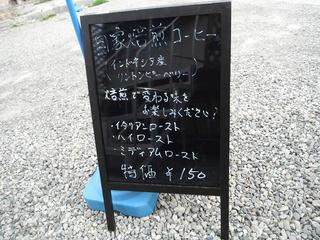 自家焙煎コーヒー
インドネシア産
(リントンピーベリー)
焙煎で変わる味を
お楽しみください!
・イタリアンロースト
・ハイロースト
・ミディアムロースト
特価 ¥150